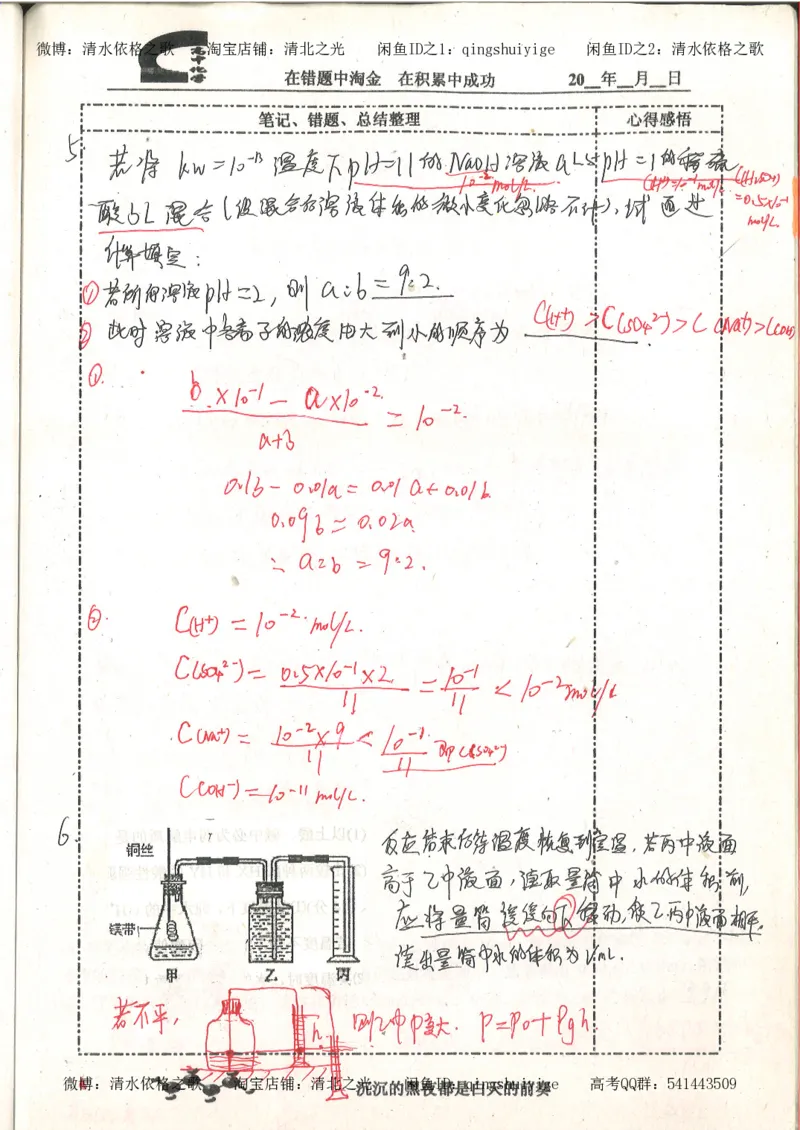 微博：清水依格之歌 淘宝店铺：清北之光 闲鱼ID之1：qingshuiyige 闲鱼ID之2：清水依格之歌
在错题中淘金 在积累中成功 20__年__月__日
笔记、错题、总结整理 心得感悟
5. 若将 kw=10⁻¹³ 温度下pH=11的NaOH溶液aL与pH=1的稀硫
10⁻² mol/L. C(H⁺)=10⁻¹mol/L C(H₂SO₄)=0.5×10⁻¹ mol/L.
酸bL混合(设混合后溶液体积的微小变化忽略不计),试通过
计算填空:
①若所得溶液pH=2,则 a:b = 9:2.
② 此时溶液中各离子的浓度由大到小的顺序为 C(H⁺)>C(SO₄²⁻)>C(Na⁺)>C(OH⁻).
①.
b×10⁻¹ - a×10⁻² / a+b = 10⁻²
0.1b - 0.01a = 0.01a + 0.01b
0.09b = 0.02a
∴ a:b = 9:2.
②. C(H⁺) = 10⁻² mol/L.
C(SO₄²⁻) = 0.5×10⁻¹×2 / 11 = 10⁻¹ / 11 < 10⁻² mol/L
C(Na⁺) = 10⁻²×9 / 11 < 10⁻¹ / 11 即C(SO₄²⁻)
C(OH⁻) = 10⁻¹¹ mol/L.
6.
铜丝
镁带
甲 乙 丙
反应结束后待温度恢复到室温,若丙中液面
高于乙中液面,读取量筒中水的体积前,
应将量筒缓缓向下移动,使乙丙中液面相平.
读出量筒中水的体积为VmL.
若不平, h 则乙中P变大. P=P₀+ρgh
微博：清水依格之歌 淘宝店铺：清北之光 闲鱼ID：qingshuiyige 高考QQ群：541443509
沉沉的黑夜都是白天的前奏